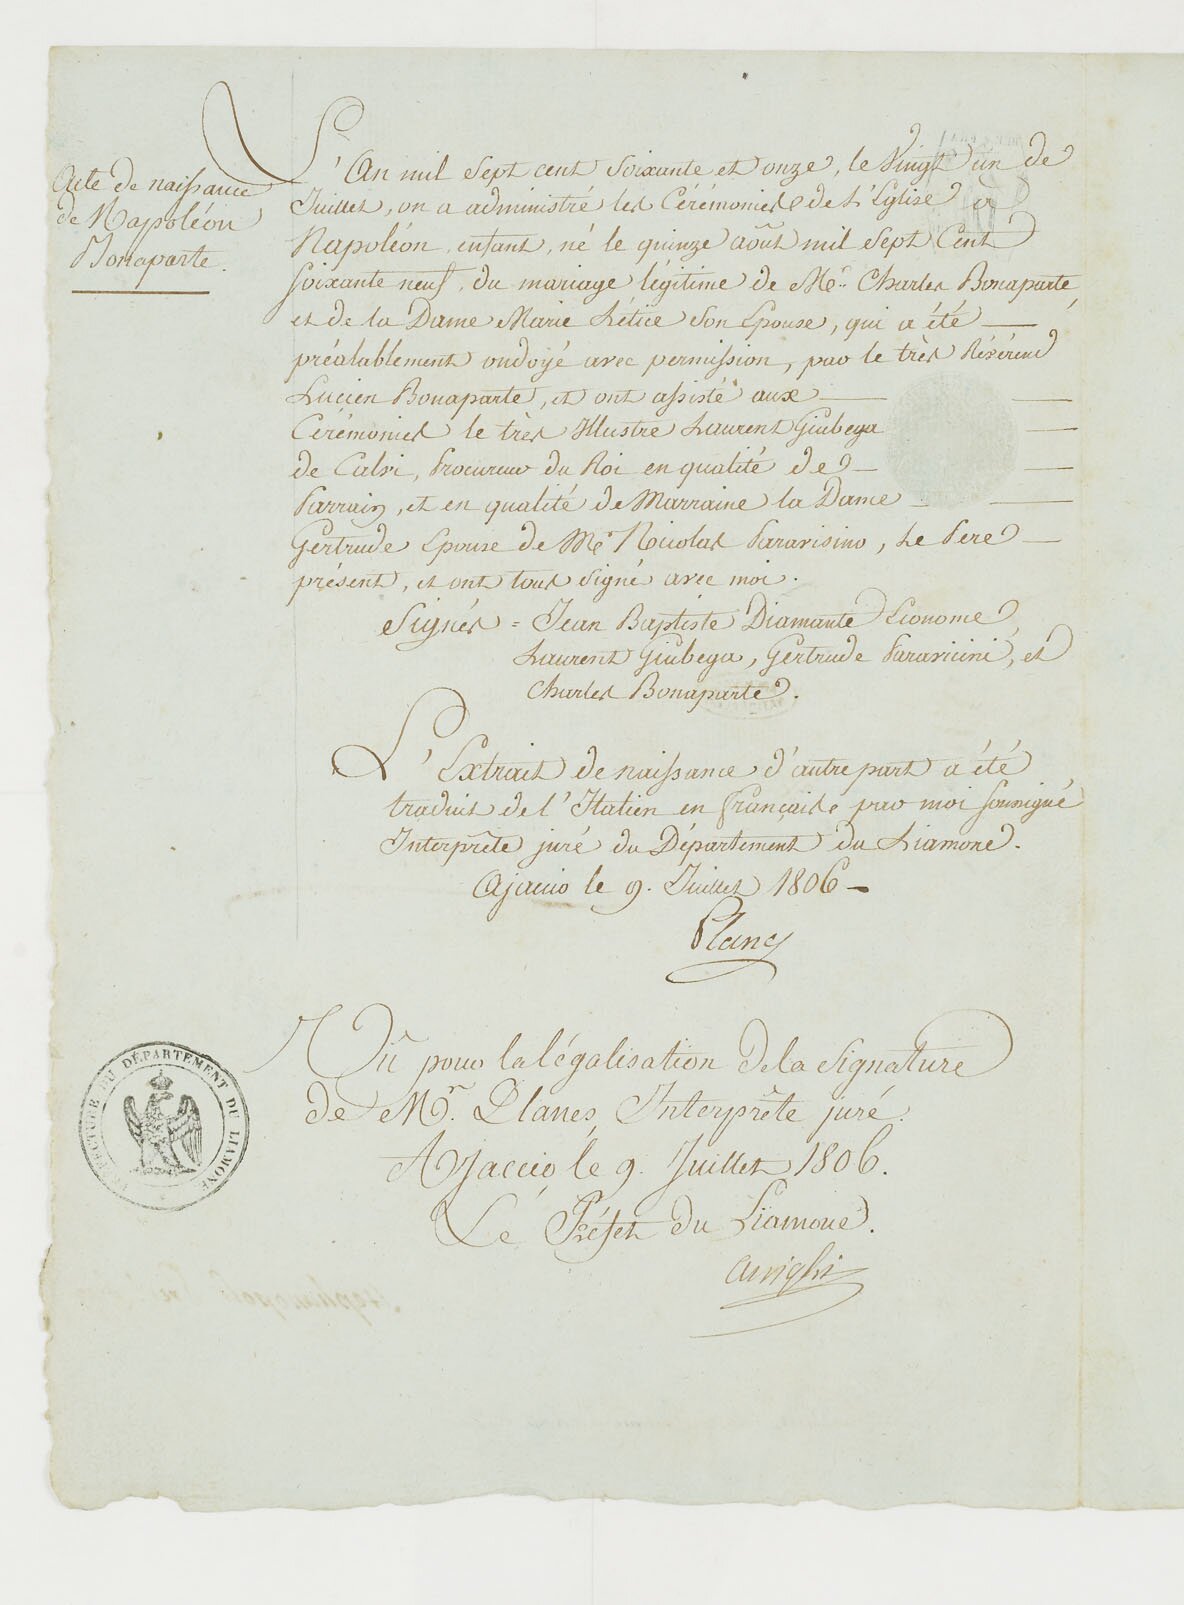 Acte de naissance
de Napoléon
Bonaparte.
L'An mil Sept cent Soixante et onze, le Vingt un de
Juillet, on a administré les Cérémonies de L'Église à
Napoléon, enfant, né le quinze août mil Sept Cent
soixante neuf, du mariage légitime de Mr. Charles Bonaparte
et de la Dame Marie Létice Son Epouse, qui a été
préalablement ondoyé avec permission, par le très Révérend
Lucien Bonaparte, et ont assisté aux
Cérémonies le très Illustre Laurent Giubega
de Calvi, Procureur du Roi en qualité de
Parrain, et en qualité de Marraine la Dame
Gertrude Epouse de Mr. Nicolas Paravisino, Le Pere
présent, et ont tous Signé avec moi.
Signés = Jean Baptiste Diamante Econome,
Laurent Giubega, Gertrude Paravicini, et
Charles Bonaparte.
L'Extrait de naissance d'autre part a été
traduit de l'Italien en français par moi soussigné
Interprête juré du Département du Liamone.
Ajaccio le 9. Juillet 1806
Planes
Vû pour la légalisation de la Signature
de Mr. Planes, Interprête juré.
Ajaccio, le 9. Juillet 1806.
Le Préfet du Liamone.
Arrighi
PRÉFECTURE DU DÉPARTEMENT DU LIAMONE